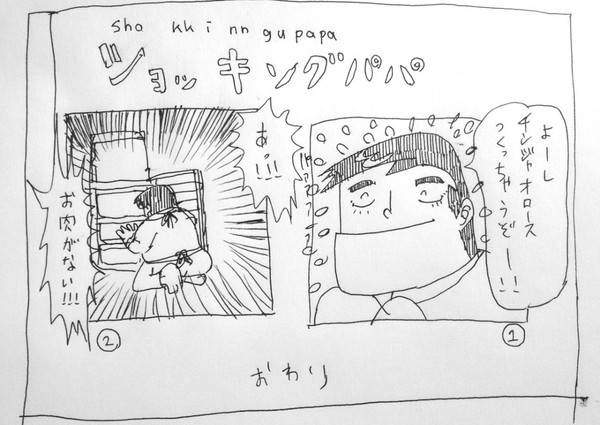 sho kk i nn gu papa
ショッキングパパ
よーし
チンジャオロース
つくっちゃうぞー!!
①
あっ!!!
お肉がない!!!
②
おわり